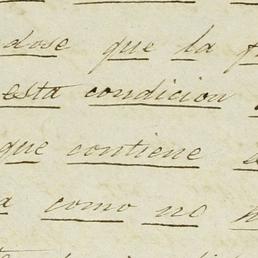 dose que la
esta condicion
que contiene
como no